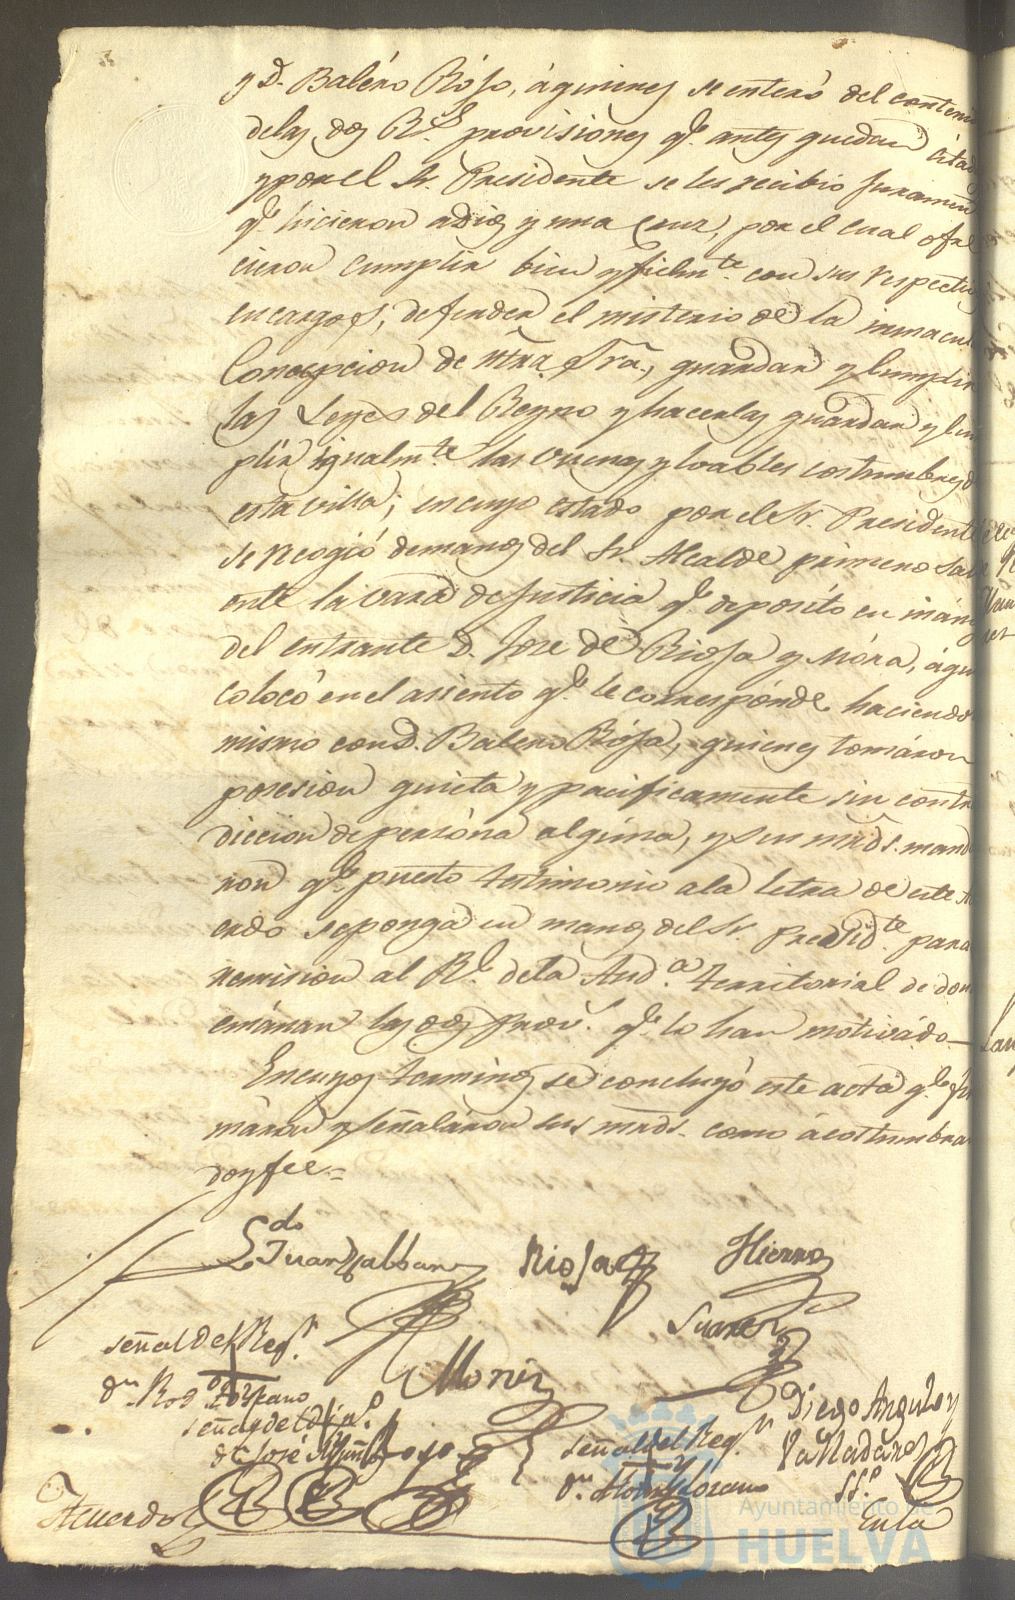 y D. Baléro Rójo, á quienes se enteró del conteni
delas dos Rs. provisiones qe. antes quedan citad
y por el Sr. Presidente se les recibio juramen
qe. hicieron a Dios y una Cruz, por el cual ofre
cieron cumplir bien y fielmte. con sus respectiv
encargos, defender el misterio de la inmacul
Concepcion de Ntra. Sra., guardar y cumplir
las Leyes del Reyno y hacerlas guardar y cum
plir igualmte. las buenas y loables costumbres d
esta villa; en cuyo estado por el Sr. Presidente
se recogió de manos del Sr. Alcalde primero sali
ente la vara de justicia qe. depositó en mános
del entrante D. Jose de Rioja y Mora, á qu
colocó en el asiento qe. le correspónde haciendo
mismo con D. Balero Rójo, quienes tomáron
posesion quieta y pacificamente sin contra
diccion de persóna algúna, y sus mrds. mand
ron qe. puesto testimonio ala letra de este A
erdo se ponga en manos del Sr. Presidte. para
remision al Rl. de la Auda. territorial de don
emánan las dos prov.s qe. lo han motivádo —
En cuyos terminos se concluyó este acta qe. fir
máron y señaláron sus mrds. como acostumbra
doy fee =
Ldo. Juan Rioja Hierro
Suarez
señal del Regr.
Dn. Rodo. Lozano
Moriz
señal del Dipo.
de José
Diego Angulo y
Valladares
señal del Regr.
Dn. Lozano
SSo.
Acuerdo
Ayuntamiento de
HUELVA